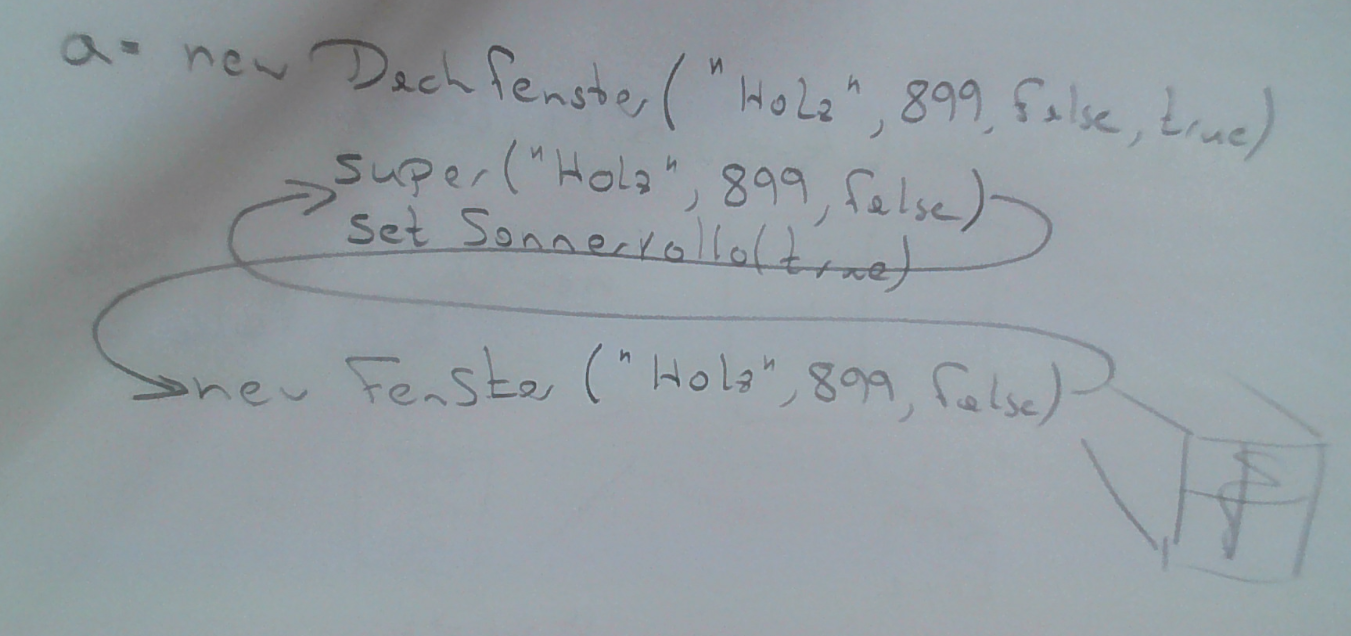 a = new Dachfenster("Holz", 899, false, true)
super("Holz", 899, false)
set Sonnenrollo(true)
new Fenster ("Holz", 899, false)